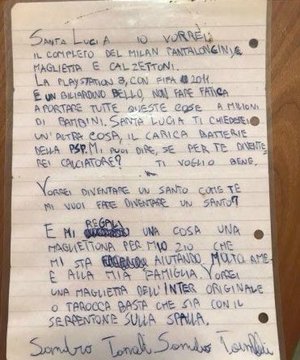 SANTA LUCIA IO VORREI
IL COMPLETO DEL MILAN PANTALONCINI,
MAGLIETTA E CALZETTONI.
LA PLAYSTATION 3, CON FIFA 2011.
E UN BILIARDINO BELLO. NON FARE FATICA
A PORTARE TUTTE QUESTE COSE A MILIONI
DI BAMBINI. SANTA LUCIA TI CHIEDEREI
UN'ALTRA COSA, IL CARICA BATTERIE
DELLA PSP. MI PUOI DIRE, SE PER TE DIVENTE
REI CALCIATORE? TI VOGLIO BENE.
VORREI DIVENTARE UN SANTO COME TE
MI VUOI FARE DIVENTARE UN SANTO?
REGALI
E MI UNA COSA UNA
MAGLIETTONA PER MIO ZIO CHE
MI STA AIUTANDO MOLTO A ME
E ALLA MIA FAMIGLIA. VORREI
UNA MAGLIETTA DELL'INTER ORIGINALE
O TAROCCA BASTA CHE SIA CON IL
SERPENTONE SULLA SPALLA.
Sandro Tonali Sandro Tonali